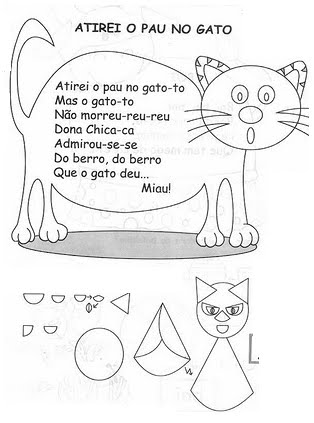 ATIREI O PAU NO GATO
Atirei o pau no gato-to
Mas o gato-to
Não morreu-reu-reu
Dona Chica-ca
Admirou-se-se
Do berro, do berro
Que o gato deu...
Miau!